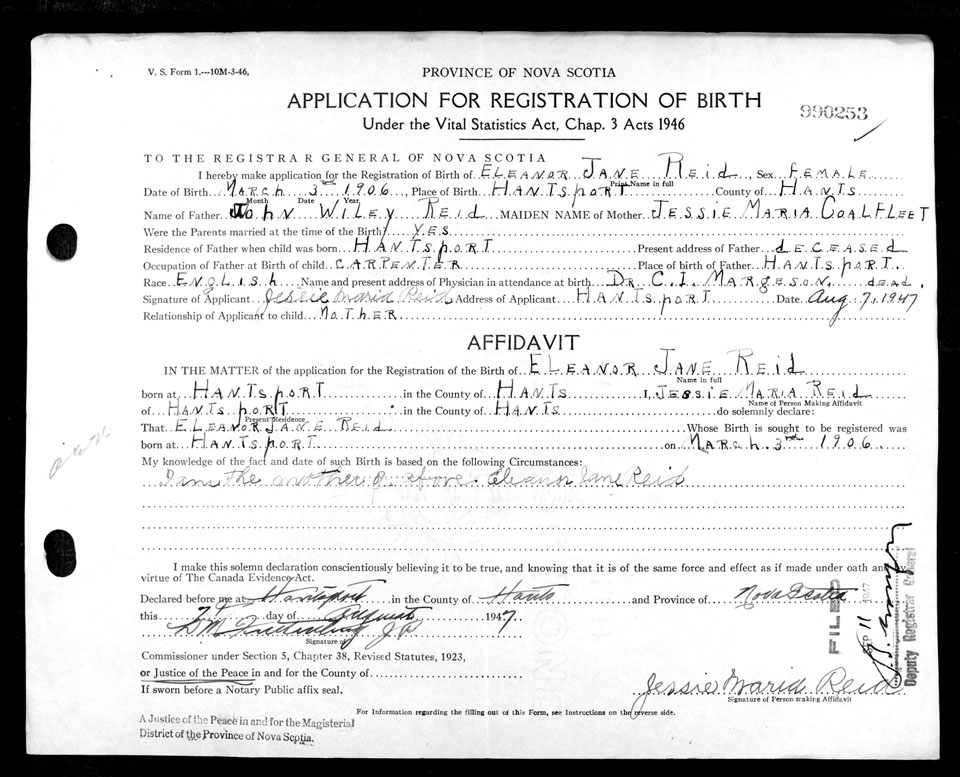 V. S. Form 1.---10M-3-46.
PROVINCE OF NOVA SCOTIA
APPLICATION FOR REGISTRATION OF BIRTH
990253
Under the Vital Statistics Act, Chap. 3 Acts 1946
TO THE REGISTRAR GENERAL OF NOVA SCOTIA
I hereby make application for the Registration of Birth of ELEANOR JANE REID, Sex FEMALE
Print Name in full
Date of Birth MARCH 3rd 1906, Place of Birth HANTSPORT County of HANTS
Month Date Year
Name of Father JOHN WILEY REID MAIDEN NAME of Mother JESSIE MARIA COALFLEET
Were the Parents married at the time of the Birth YES
Residence of Father when child was born HANTSPORT Present address of Father DECEASED
Occupation of Father at Birth of child CARPENTER Place of birth of Father HANTSPORT
Race ENGLISH Name and present address of Physician in attendance at birth DR C. I. MARGESON. dead.
Signature of Applicant Jessie Maria Reid Address of Applicant HANTSPORT Date Aug 7, 1947
Relationship of Applicant to child MOTHER
AFFIDAVIT
IN THE MATTER of the application for the Registration of the Birth of ELEANOR JANE REID
Name in full
born at HANTSPORT in the County of HANTS I, JESSIE MARIA REID
Name of Person Making Affidavit
of HANTSPORT in the County of HANTS do solemnly declare:
Present Residence
That ELEANOR JANE REID Whose Birth is sought to be registered was
born at HANTSPORT on MARCH 3rd 1906
My knowledge of the fact and date of such Birth is based on the following Circumstances:
I am the mother of above. Eleanor Jane Reid
I make this solemn declaration conscientiously believing it to be true, and knowing that it is of the same force and effect as if made under oath and
virtue of The Canada Evidence Act.
Declared before me at Hantsport in the County of Hants and Province of Nova Scotia
this 7th day of August 1947
J P
Signature of
Commissioner under Section 5, Chapter 38, Revised Statutes, 1923,
or Justice of the Peace in and for the County of
If sworn before a Notary Public affix seal.
Jessie Maria Reid
Signature of Person making Affidavit
For Information regarding the filling out of this Form, see Instructions on the reverse side.
A Justice of the Peace in and for the Magisterial
District of the Province of Nova Scotia.
FILED
SEP 11 1947
Deputy Registrar General